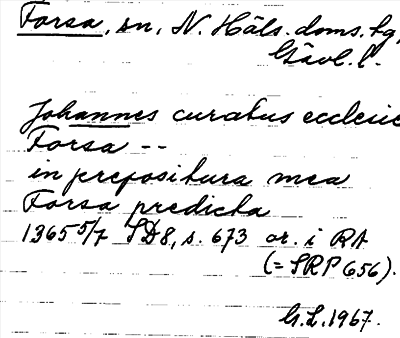 Forsa, sn, N. Häls. doms. tg,
Gävl. l.
Johannes curatus ecclesie
Forsa --
in prepositura mea
Forsa predicta
1365 5/7 SD8, s. 673 or. i RA
(= SRP 656).
G.L. 1967.